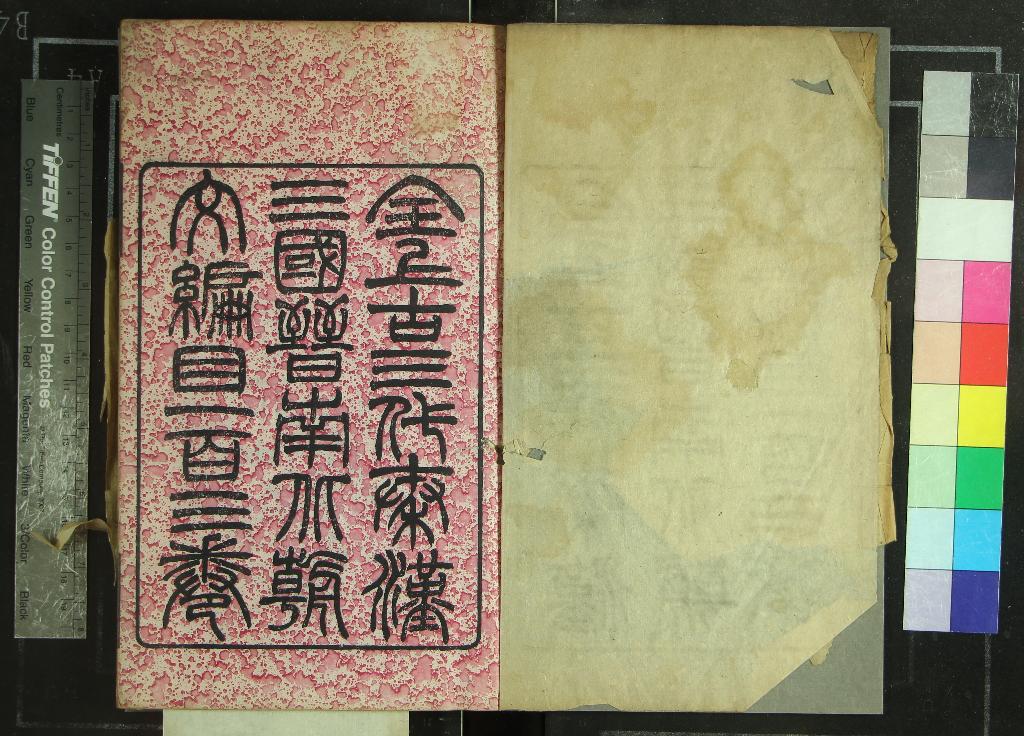 全上古三代秦漢
三國晉南北朝
文編目一百三卷
TIFFEN Color Control Patches
Centimetres
Inches
Blue Cyan Green Yellow Red Magenta White 3/Color Black
A4
B4